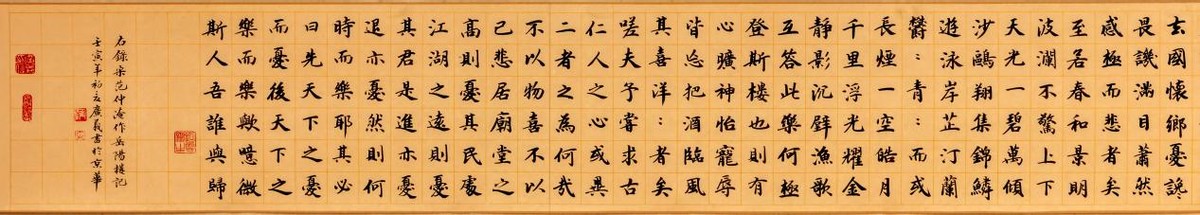 去國懷鄉憂讒
畏譏滿目蕭然
感極而悲者矣
至若春和景明
波瀾不驚上下
天光一碧萬頃
沙鷗翔集錦鱗
遊泳岸芷汀蘭
鬱：青：而或
長煙一空皓月
千里浮光耀金
靜影沉璧漁歌
互答此樂何極
登斯樓也則有
心曠神怡寵辱
皆忘把酒臨風
其喜洋：者矣
嗟夫予嘗求古
仁人之心或異
二者之為何哉
不以物喜不以
己悲居廟堂之
高則憂其民處
江湖之遠則憂
其君是進亦憂
退亦憂然則何
時而樂耶其必
曰先天下之憂
而憂後天下之
樂而樂歟噫微
斯人吾誰與歸
右錄宋范仲淹作岳陽樓記
壬寅年初夏廣義書於京華